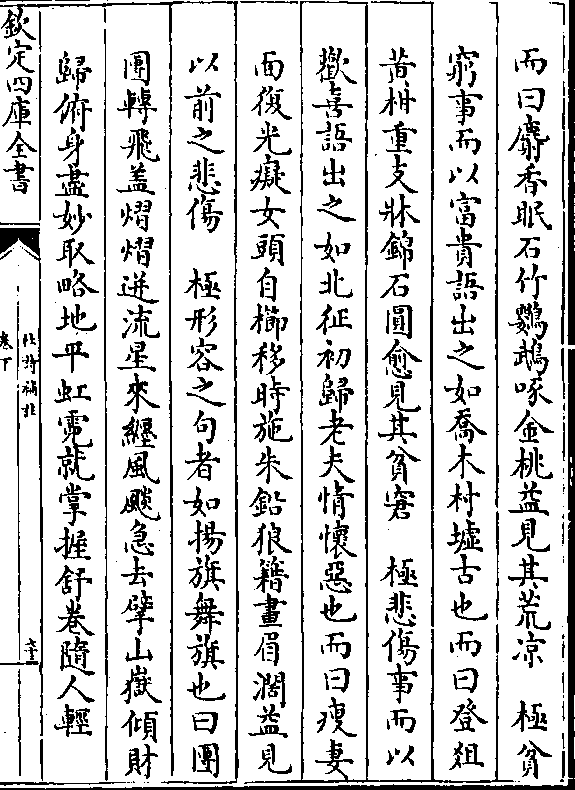 而曰麝香眠石竹鸚鵡啄金桃益見其荒凉　極貧
窮事而以富貴語出之如喬木村墟古也而曰登俎
黄柑重支牀錦石圓愈見其貧窘　極悲傷事而以
歡喜語出之如北征初歸老夫情懷惡也而曰瘦妻
面復光癡女頭自櫛移時施朱鉛狼籍畫眉濶益見
以前之悲傷　極形容之句者如揚旗舞旗也曰團
團轉飛盖熠熠迸流星來纒風飈急去擘山嶽傾財
歸俯身盡妙取略地平虹霓就掌握舒卷隨人輕
欽定四庫全書
杜詩補註
卷下